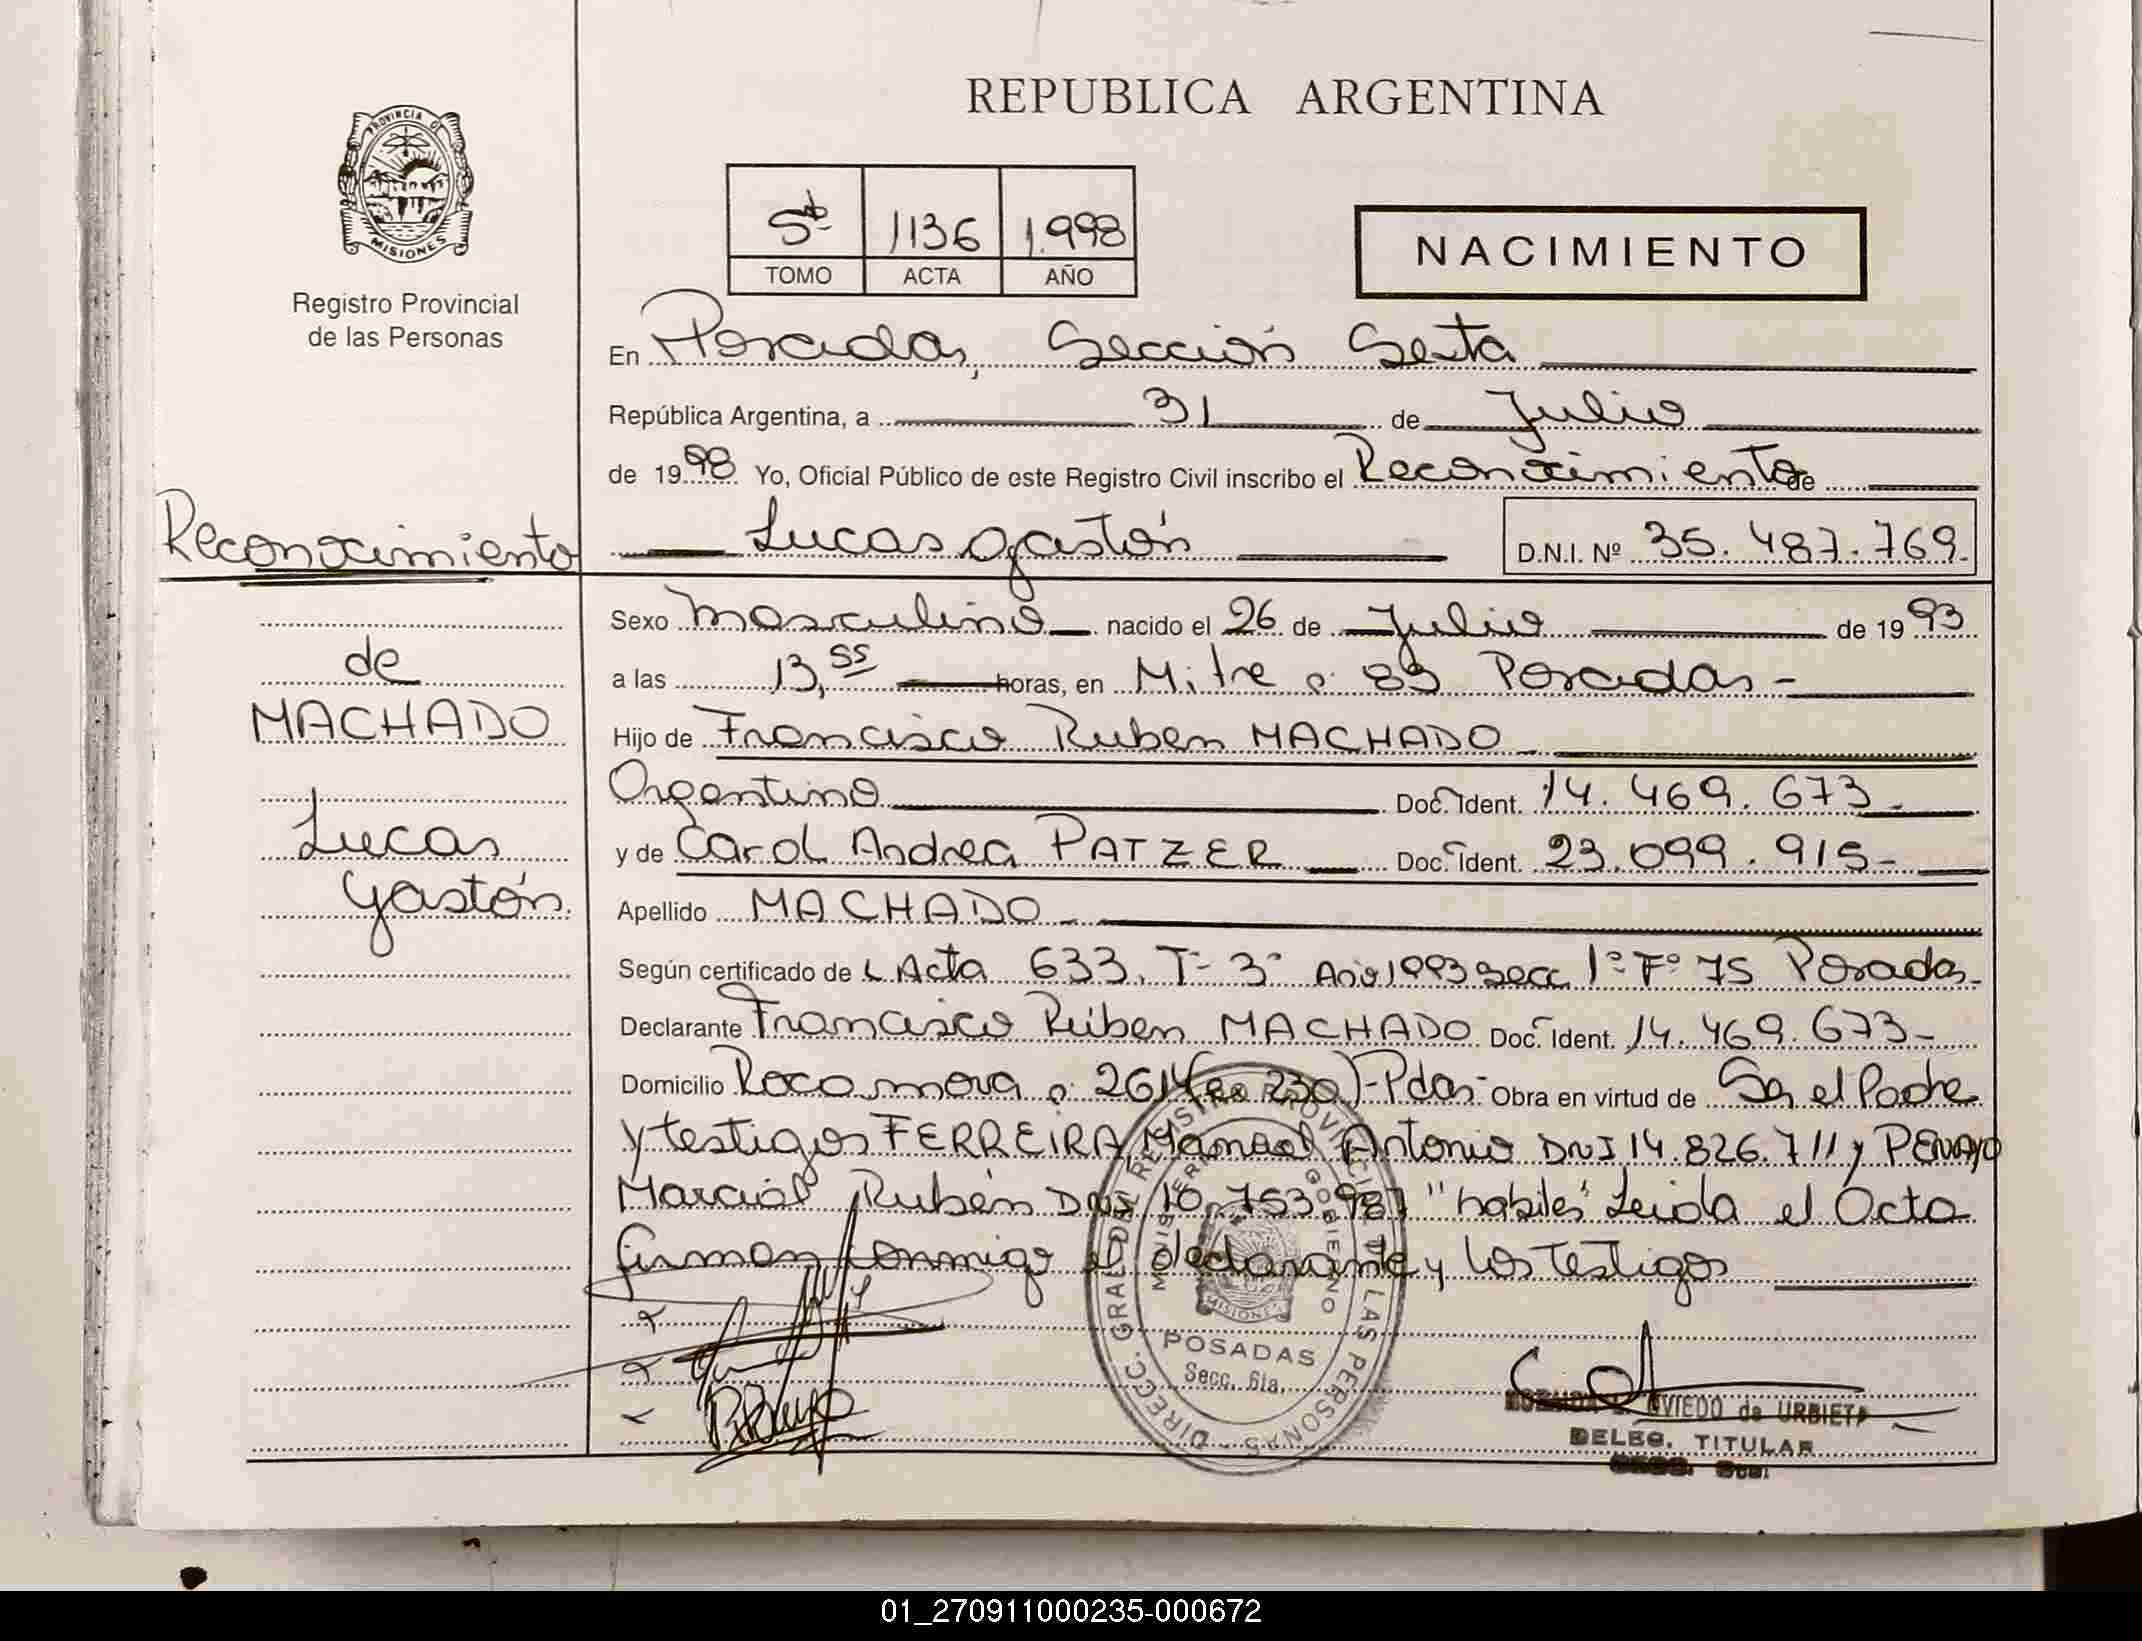 REPUBLICA ARGENTINA
PROVINCIA DE
MISIONES
Registro Provincial
de las Personas
5to 1136 1.998
TOMO ACTA AÑO
NACIMIENTO
En Posadas, Sección Sexta
República Argentina, a 31 de Julio
de 1998 Yo, Oficial Público de este Registro Civil inscribo el Reconocimiento de
Lucas Gastón D.N.I. Nº 35.487.769.
Reconocimiento
de
MACHADO
Lucas
Gastón.
Sexo Masculino nacido el 26 de Julio de 1993
a las 13,55 horas, en Mitre 83 Posadas -
Hijo de Francisco Ruben MACHADO
Argentino Doc. Ident. 14.469.673-
y de Carol Andrea PATZER Doc. Ident. 23.099.915-
Apellido MACHADO
Según certificado de L Acta 633. T- 3° Año 1993 Secc 1° F° 75 Posadas-
Declarante Francisco Rúben MACHADO Doc. Ident. 14.469.673-
Domicilio Rocamora 2614 (230)-Pdas- Obra en virtud de Ser el Padre
y testigos FERREIRA Manuel Antonio DNI 14.826.711 y PENAYO
Marcial Rubén DNI 10.753.987 "habiles" Leida el Acta
firman conmigo el declarante y los testigos
DIRECC. GRAL. DEL REGISTRO PROVINCIAL DE LAS PERSONAS
MINISTERIO GOBIERNO
MISIONES
POSADAS
Secc. 6ta.
OVIEDO de URBIETA
DELEG. TITULAR
01_270911000235-000672